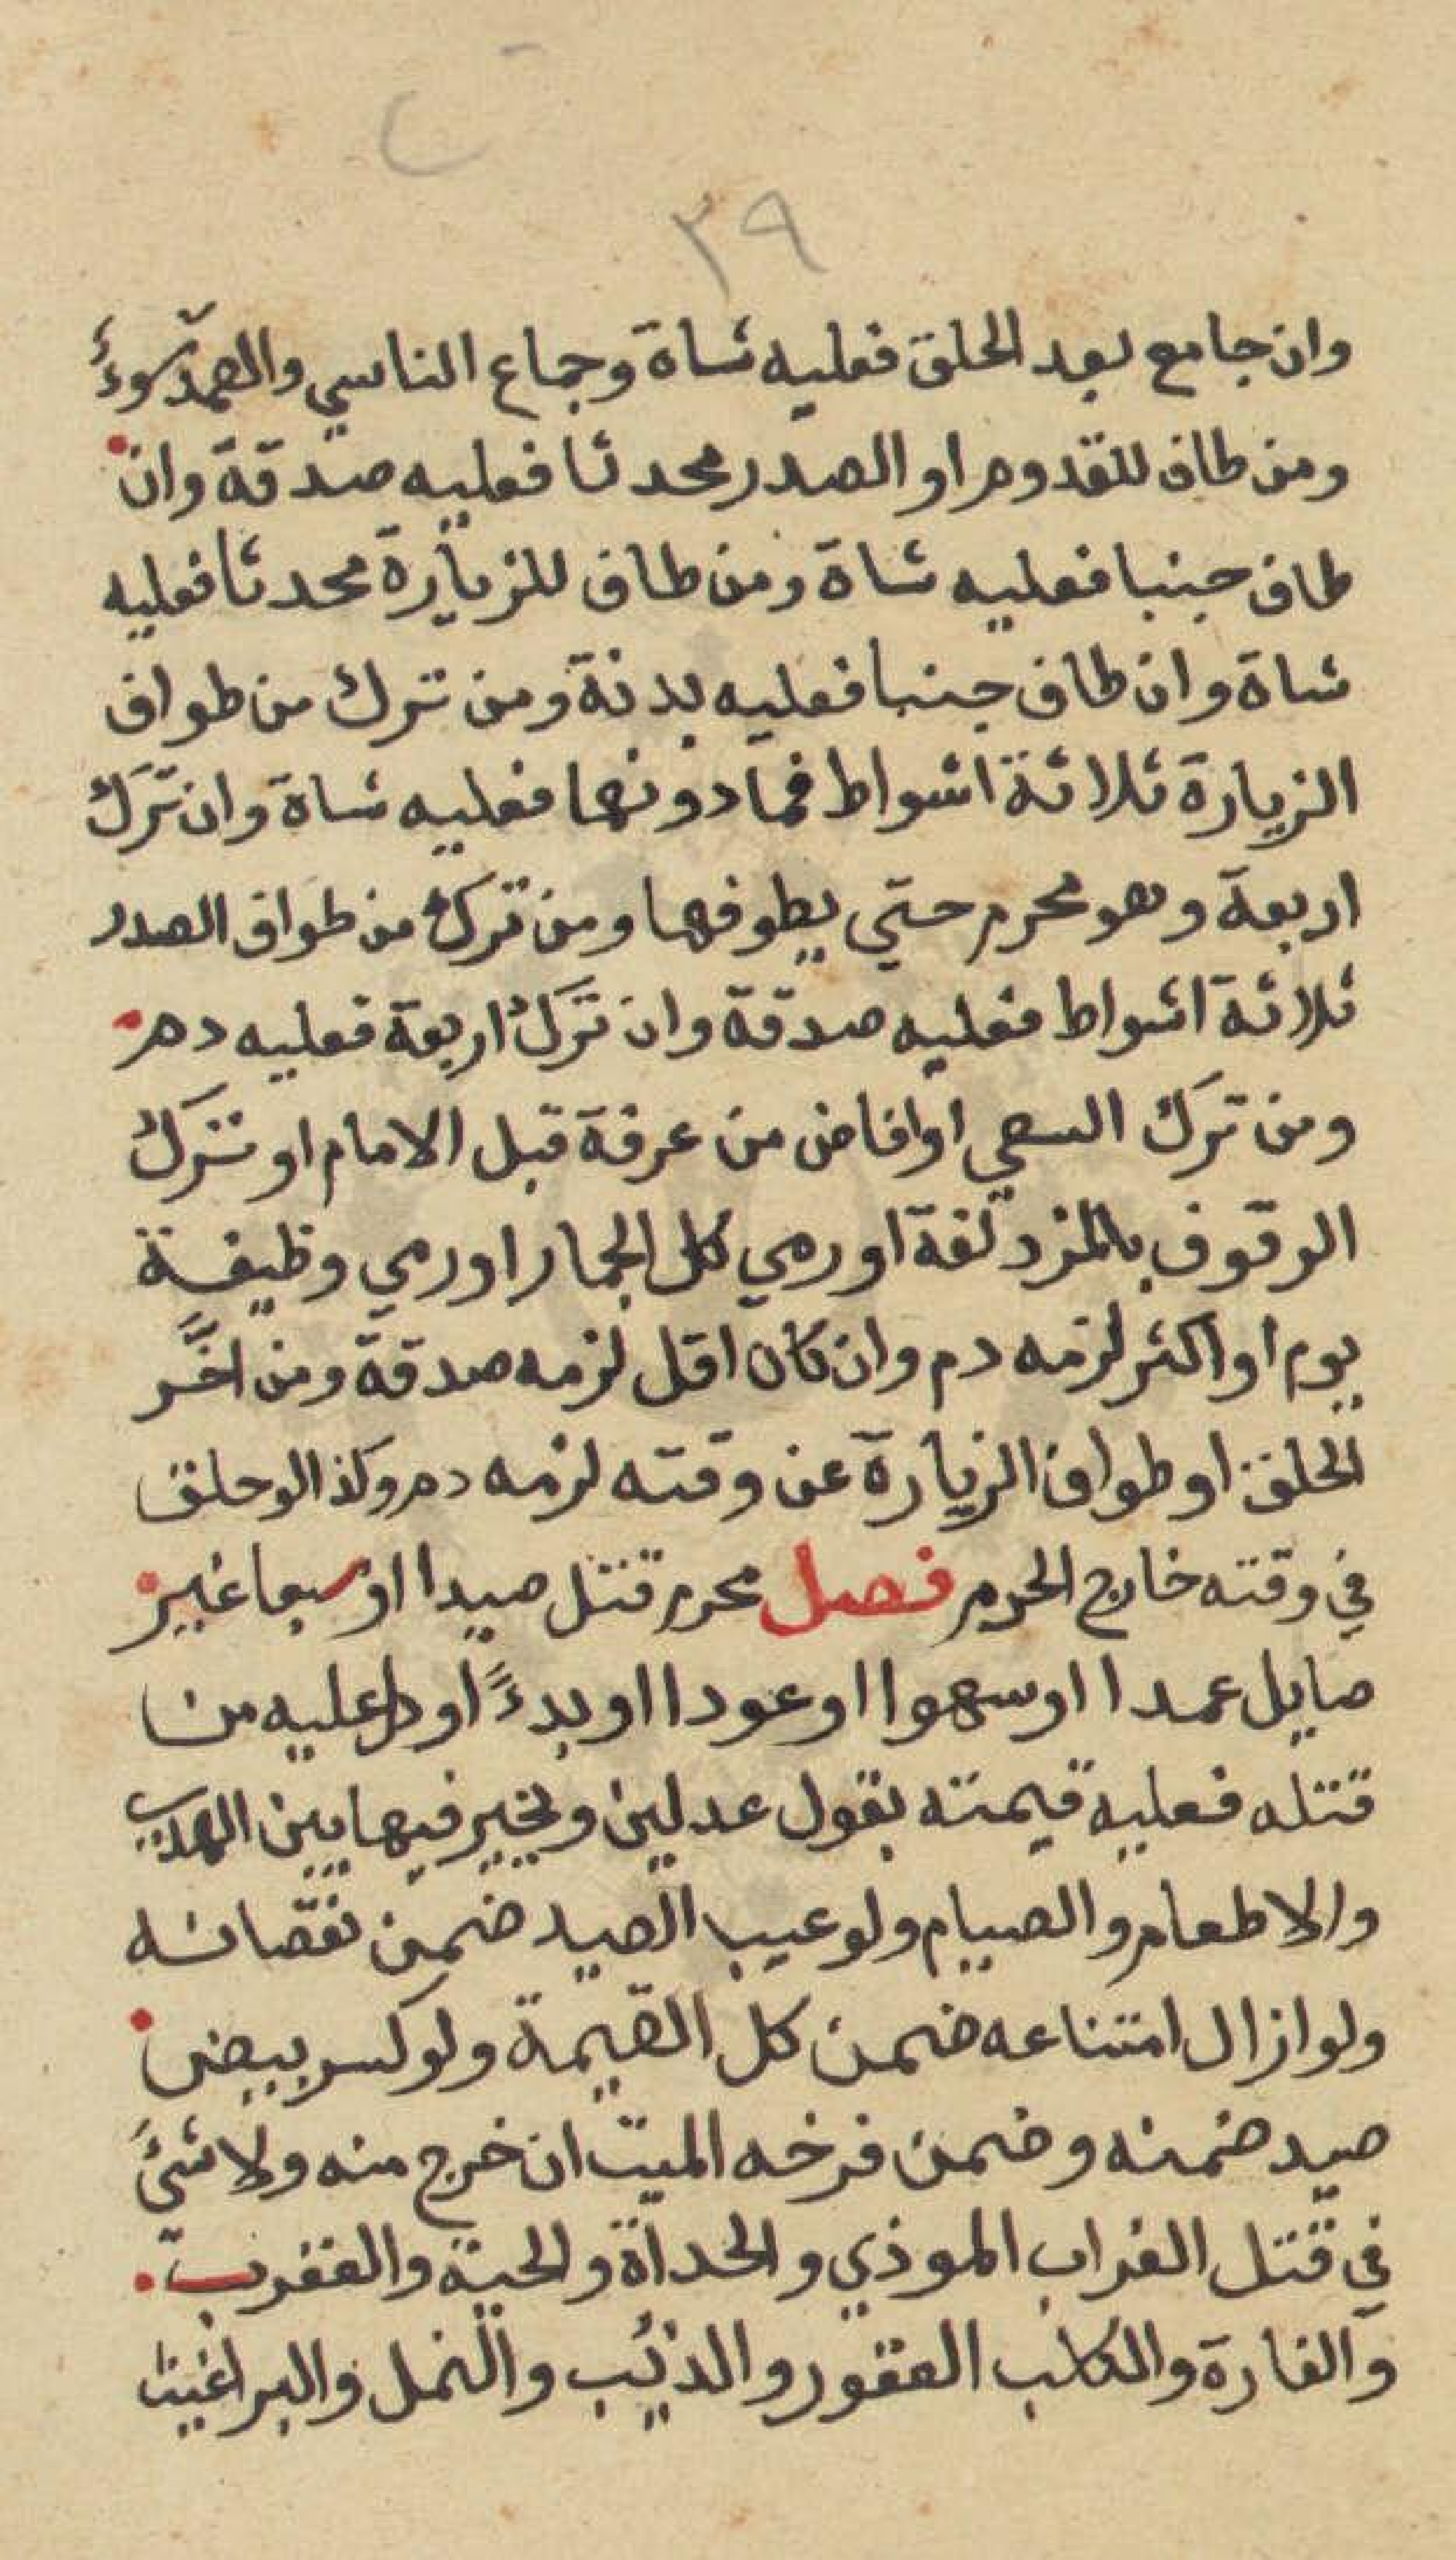 ٣٩
وان جامع بعد الحلق فعليه شاة وجماع الناسي والعمد سوءٌ
ومن طاف للقدوم او الصدر محدثا فعليه صدقة وان
طاف جنبا فعليه شاة ومن طاف للزيارة محدثا فعليه
شاة وان طاف جنبا فعليه بدنة ومن ترك من طواف
الزيارة ثلاثة اشواط فما دونها فعليه شاة وان ترك
اربعة وهو محرم حتي يطوفها ومن ترك من طواف الصدر
ثلاثة اشواط فعليه صدقة وان ترك اربعة فعليه دم
ومن ترك السعي او افاض من عرفة قبل الامام او ترك
الوقوف بالمزدلفة او رمي كل الجمار او رمي وظيفة
يوم او اكثر لزمه دم وان كان اقل لزمه صدقة ومن اخَّر
الحلق او طواف الزيارة عن وقته لزمه دم وكذا لو حلق
في وقته خارج الحرم فصل محرم قتل صيدا او سبعا غير
صايل عمدا او سهوا او عودا او بدءً او دل عليه من
قتله فعليه قيمته بقول عدلين ويخير فيها بين الهدي
والاطعام والصيام ولو عيب الصيد ضمن نقصانه
ولو ازال امتناعه ضمن كل القيمة ولو كسر بيض
صيد ضمنه وضمن فرخه الميت ان خرج منه ولا شئ
في قتل الغراب الموذي والحدأة والحية والعقرب
والفارة والكلب العقور والذئب والنمل والبراغيث